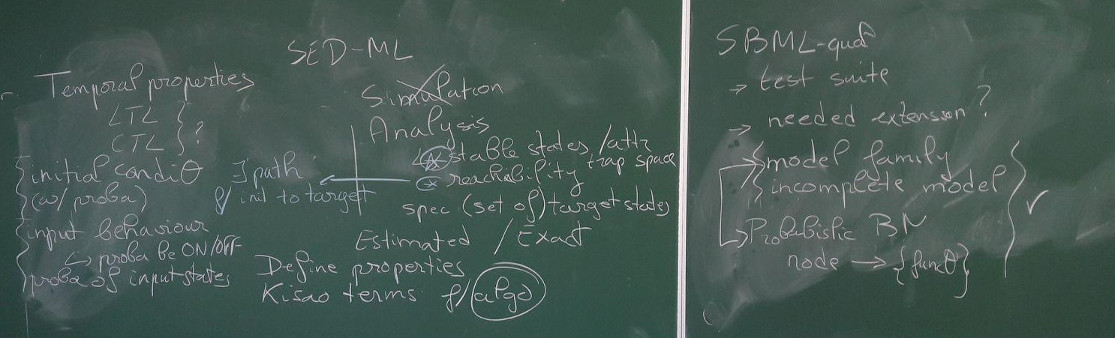 SED-ML
Temporal properties
LTL }
CTL } ?
{ initial condiθ
(w/ proba)
{ input behaviour
↳ proba be ON/OFF
{ proba of input states
Simulation
Analysis
stable states / attr
trap space
reachability
∃ path
f/ init to target
spec (set of) target states
Estimated / Exact
Define properties
Kisao terms f/ algo
SBML-qual
→ test suite
→ needed extension ?
→ model family
incomplete model
→ Probabilistic BN
node → {funcθ}